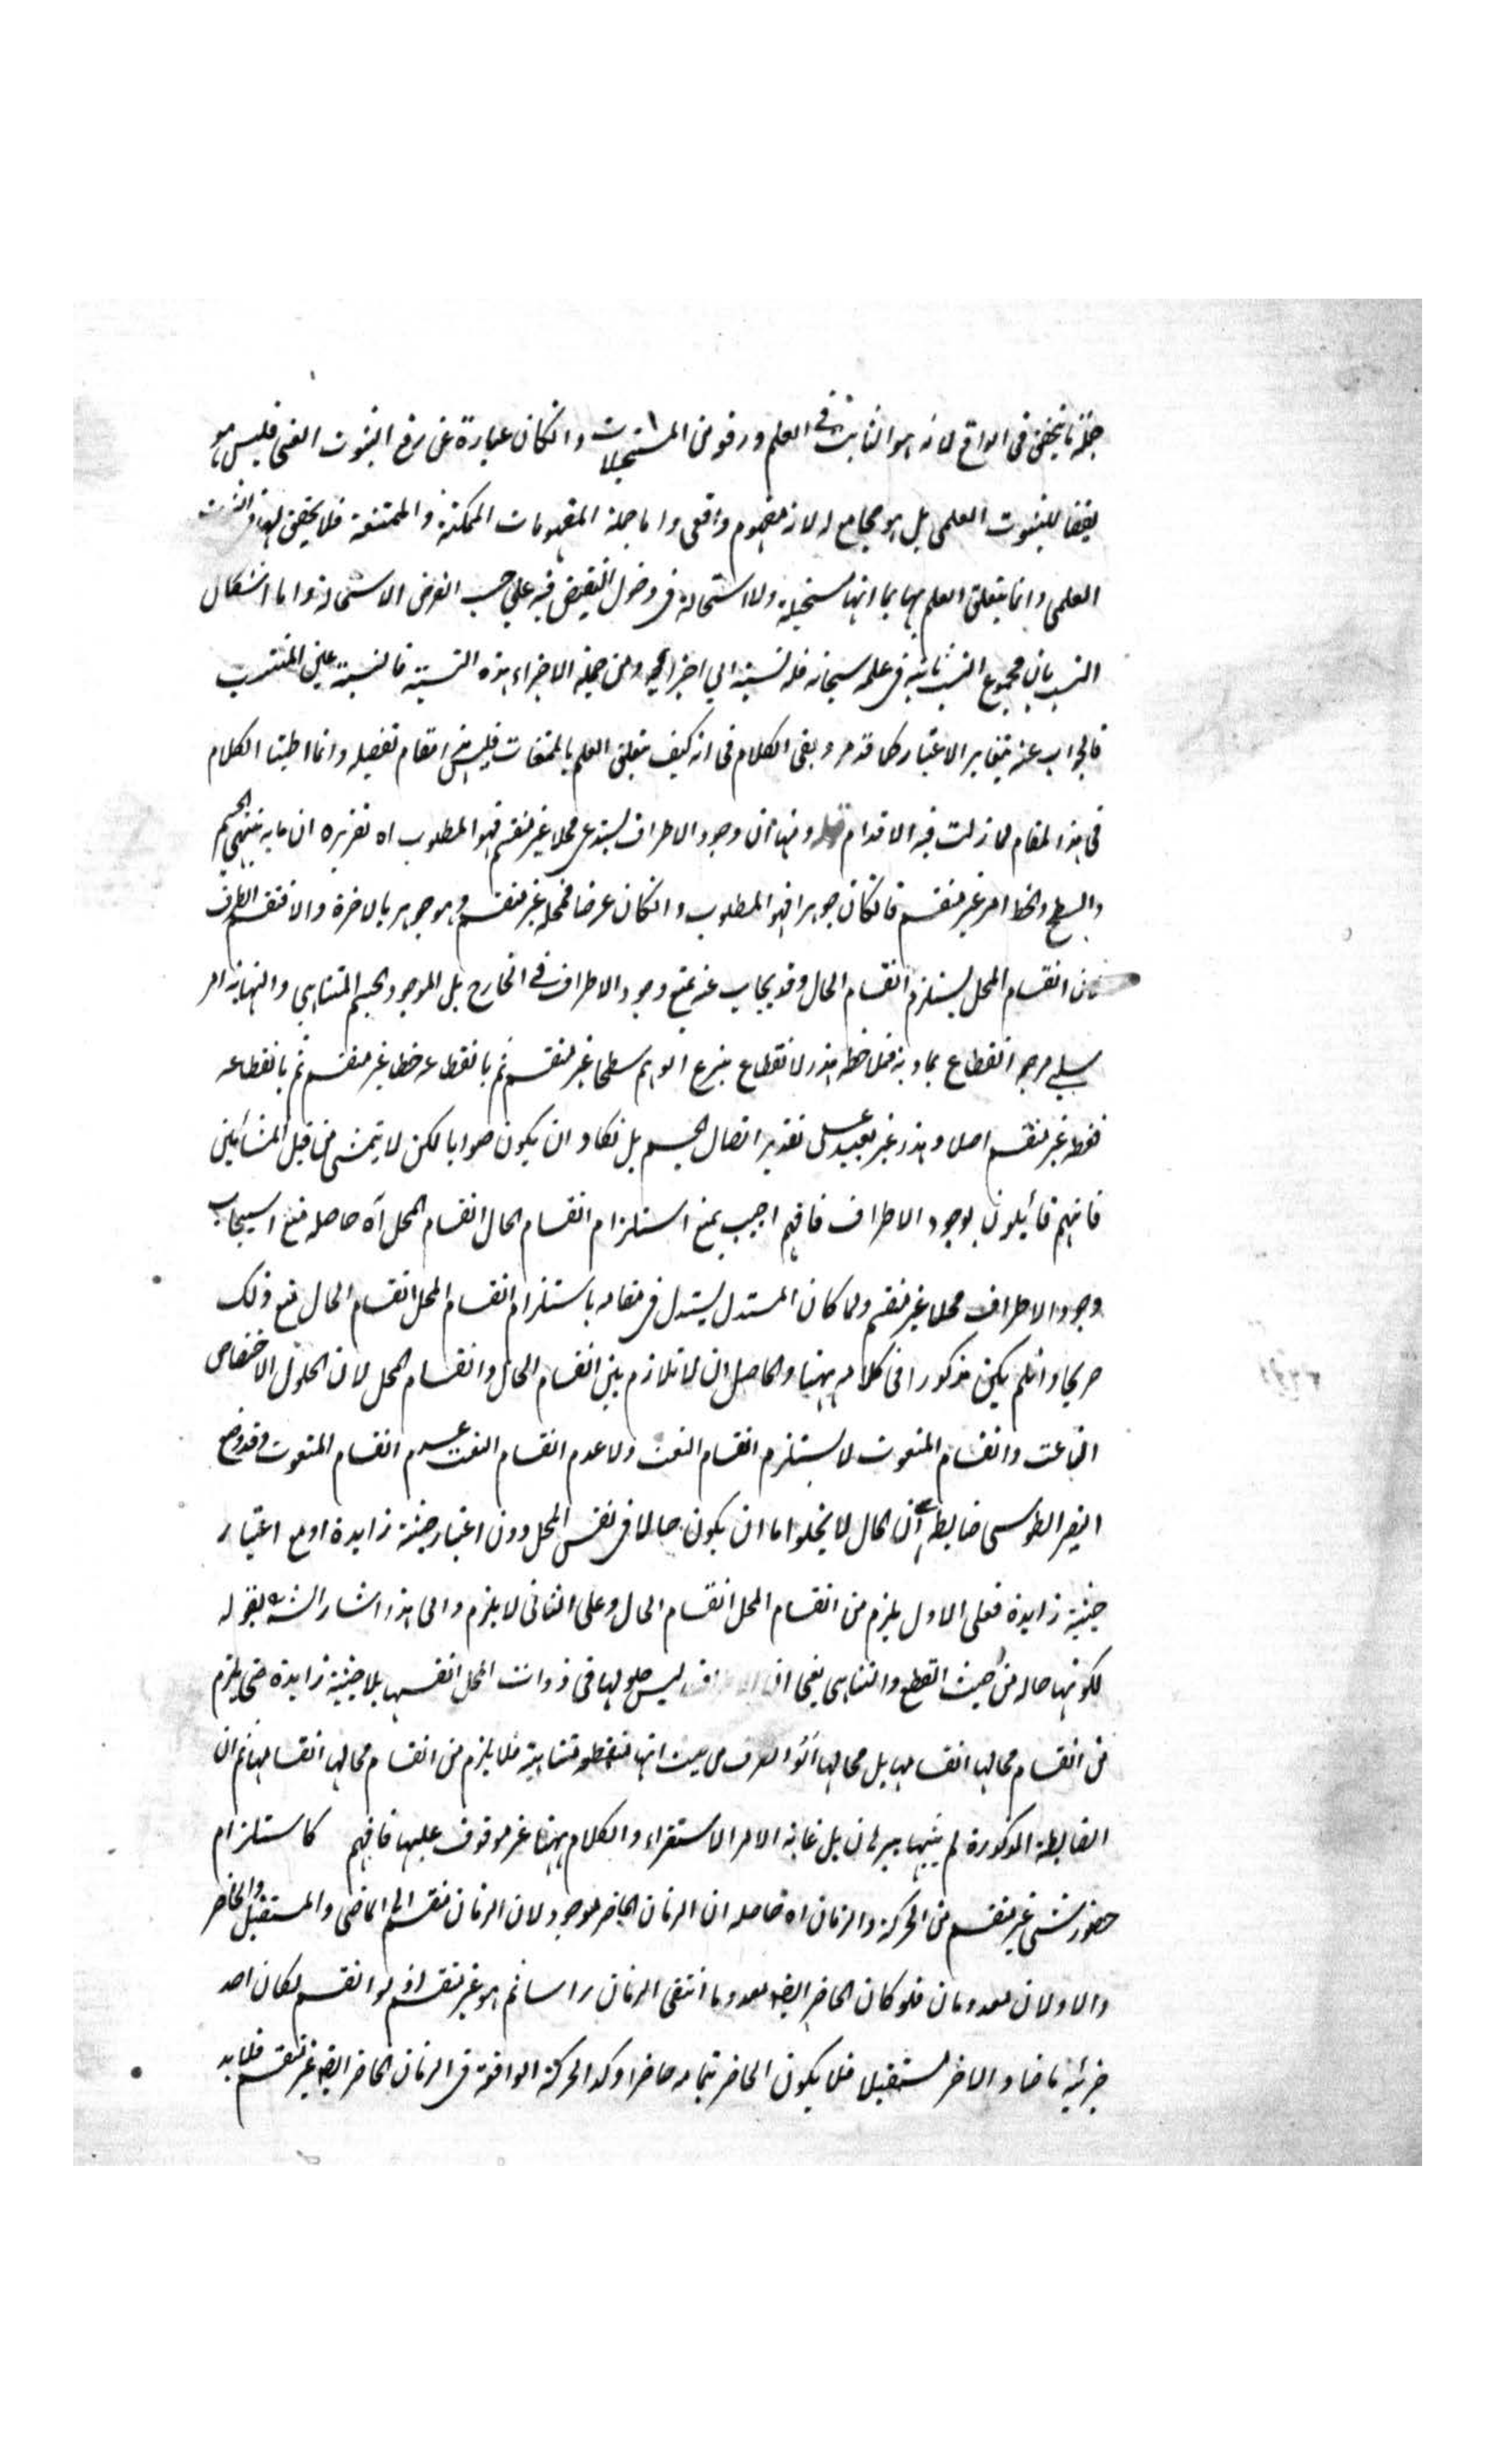 جملة ما يتحقق في الواقع لانه هو الثابت في العلم ورفعه من المستحيلات وانكان عبارة عن رفع الثبوت العيني فليس هو
نقيضا للثبوت العلمي بل هو مجامع له لانه مفهوم واقعي واما جملة المفهومات الممكنة والممتنعة فلا يتحقق لها الثبوت
العلمي وانما يتعلق العلم بها بما انها مستحيلة ولا استحالة في دخول النقيض فيه على حسب الفرض الاستحالة واما اشكال
النسب بان مجموع النسب ثابتة في علمه سبحانه فله نسبة الي اجزائه ومن جملة الاجزاء هذه النسبة فالنسبة عين المنتسب
فالجواب عنه بتغاير الاعتبار كما قد مر وبقى الكلام في انه كيف يتعلق العلم بالممتنعات فليس هذا مقام تفصيله وانما اطنبنا الكلام
في هذا المقام لما زلت فيه الاقدام قوله ومنها ان وجود الاطراف يستدعي محلا غير منقسم فهو المطلوب اه تقريره ان ما به ينتهي الجسم
والسطح والخط امر غير منقسم فانكان جوهرا فهو المطلوب وانكان عرضا فمحله غير منقسم وهو جوهر بالاخرة والا فتنقسم الطرف
فان انقسام المحل يستلزم انقسام الحال وقد يجاب عنه بمنع وجود الاطراف في الخارج بل الموجود الجسم المتناهي والنهاية امر
سلبي مرجعه انقطاع تماديه فملاحظة هذا الانقطاع ينزع الوهم سطحا غير منقسم ثم بانقطاعه خطا غير منقسم ثم بانقطاعه
نقطة غير منقسم اصلا وهذا غير بعيد على تقدير اتصال الجسم بل يكاد ان يكون صوابا لكن لا يتمشى من قبل المشائين
فانهم قائلون بوجود الاطراف فافهم اجيب بمنع استلزام انقسام الحال انقسام المحل آه حاصله منع استيجاب
وجود الاطراف محلا غير منقسم ولما كان المستدل يستدل في مقامه باستلزام انقسام المحل انقسام الحال منع ذلك
صريحا وان لم يكن مذكورا في كلامه ههنا والحاصل ان لا تلازم بين انقسام الحال وانقسام المحل لان الحلول الاختصاص
الناعت وانقسام المنعوت لا يستلزم انقسام النعت ولا عدم انقسام النعت عدم انقسام المنعوت وقد وضع
النصير الطوسي ضابطة ان الحال لا يخلو اما ان يكون حالا في نفس المحل دون اعتبار حيثية زايدة او مع اعتبار
حيثية زايدة فعلى الاول يلزم من انقسام المحل انقسام الحال وعلى الثاني لا يلزم والى هذا اشار الشه بقوله
لكونها حالة من حيث القطع والتناهي يعني ان الاطراف ليس حلولها في ذوات المحل انفسها بلا حيثية زايدة حتى يلزم
من انقسام محالها انقسامها بل محالها من حيث انها منقطعة متناهية فلا يلزم من انقسام محالها انقسامها ثم ان
الضابطة المذكورة لم يثبتها ببرهان بل غاية الامر الاستقراء والكلام ههنا غير موقوف عليها فافهم كاستلزام
حضور شيء غير منقسم من الحركة والزمان اه حاصله ان الزمان الحاضر موجود لان الزمان منقسم الى الماضي والمستقبل والحاضر
والاولان معدومان فلو كان الحاضر ايضا معدوما انتفى الزمان راسا ثم هو غير منقسم اذ لو انقسم لكان احد
جزئيه ماضيا والاخر مستقبلا فلا يكون الحاضر بتمامه حاضرا وكذا الحركة الواقعة في الزمان الحاضر ايضا غير منقسم فلا بد